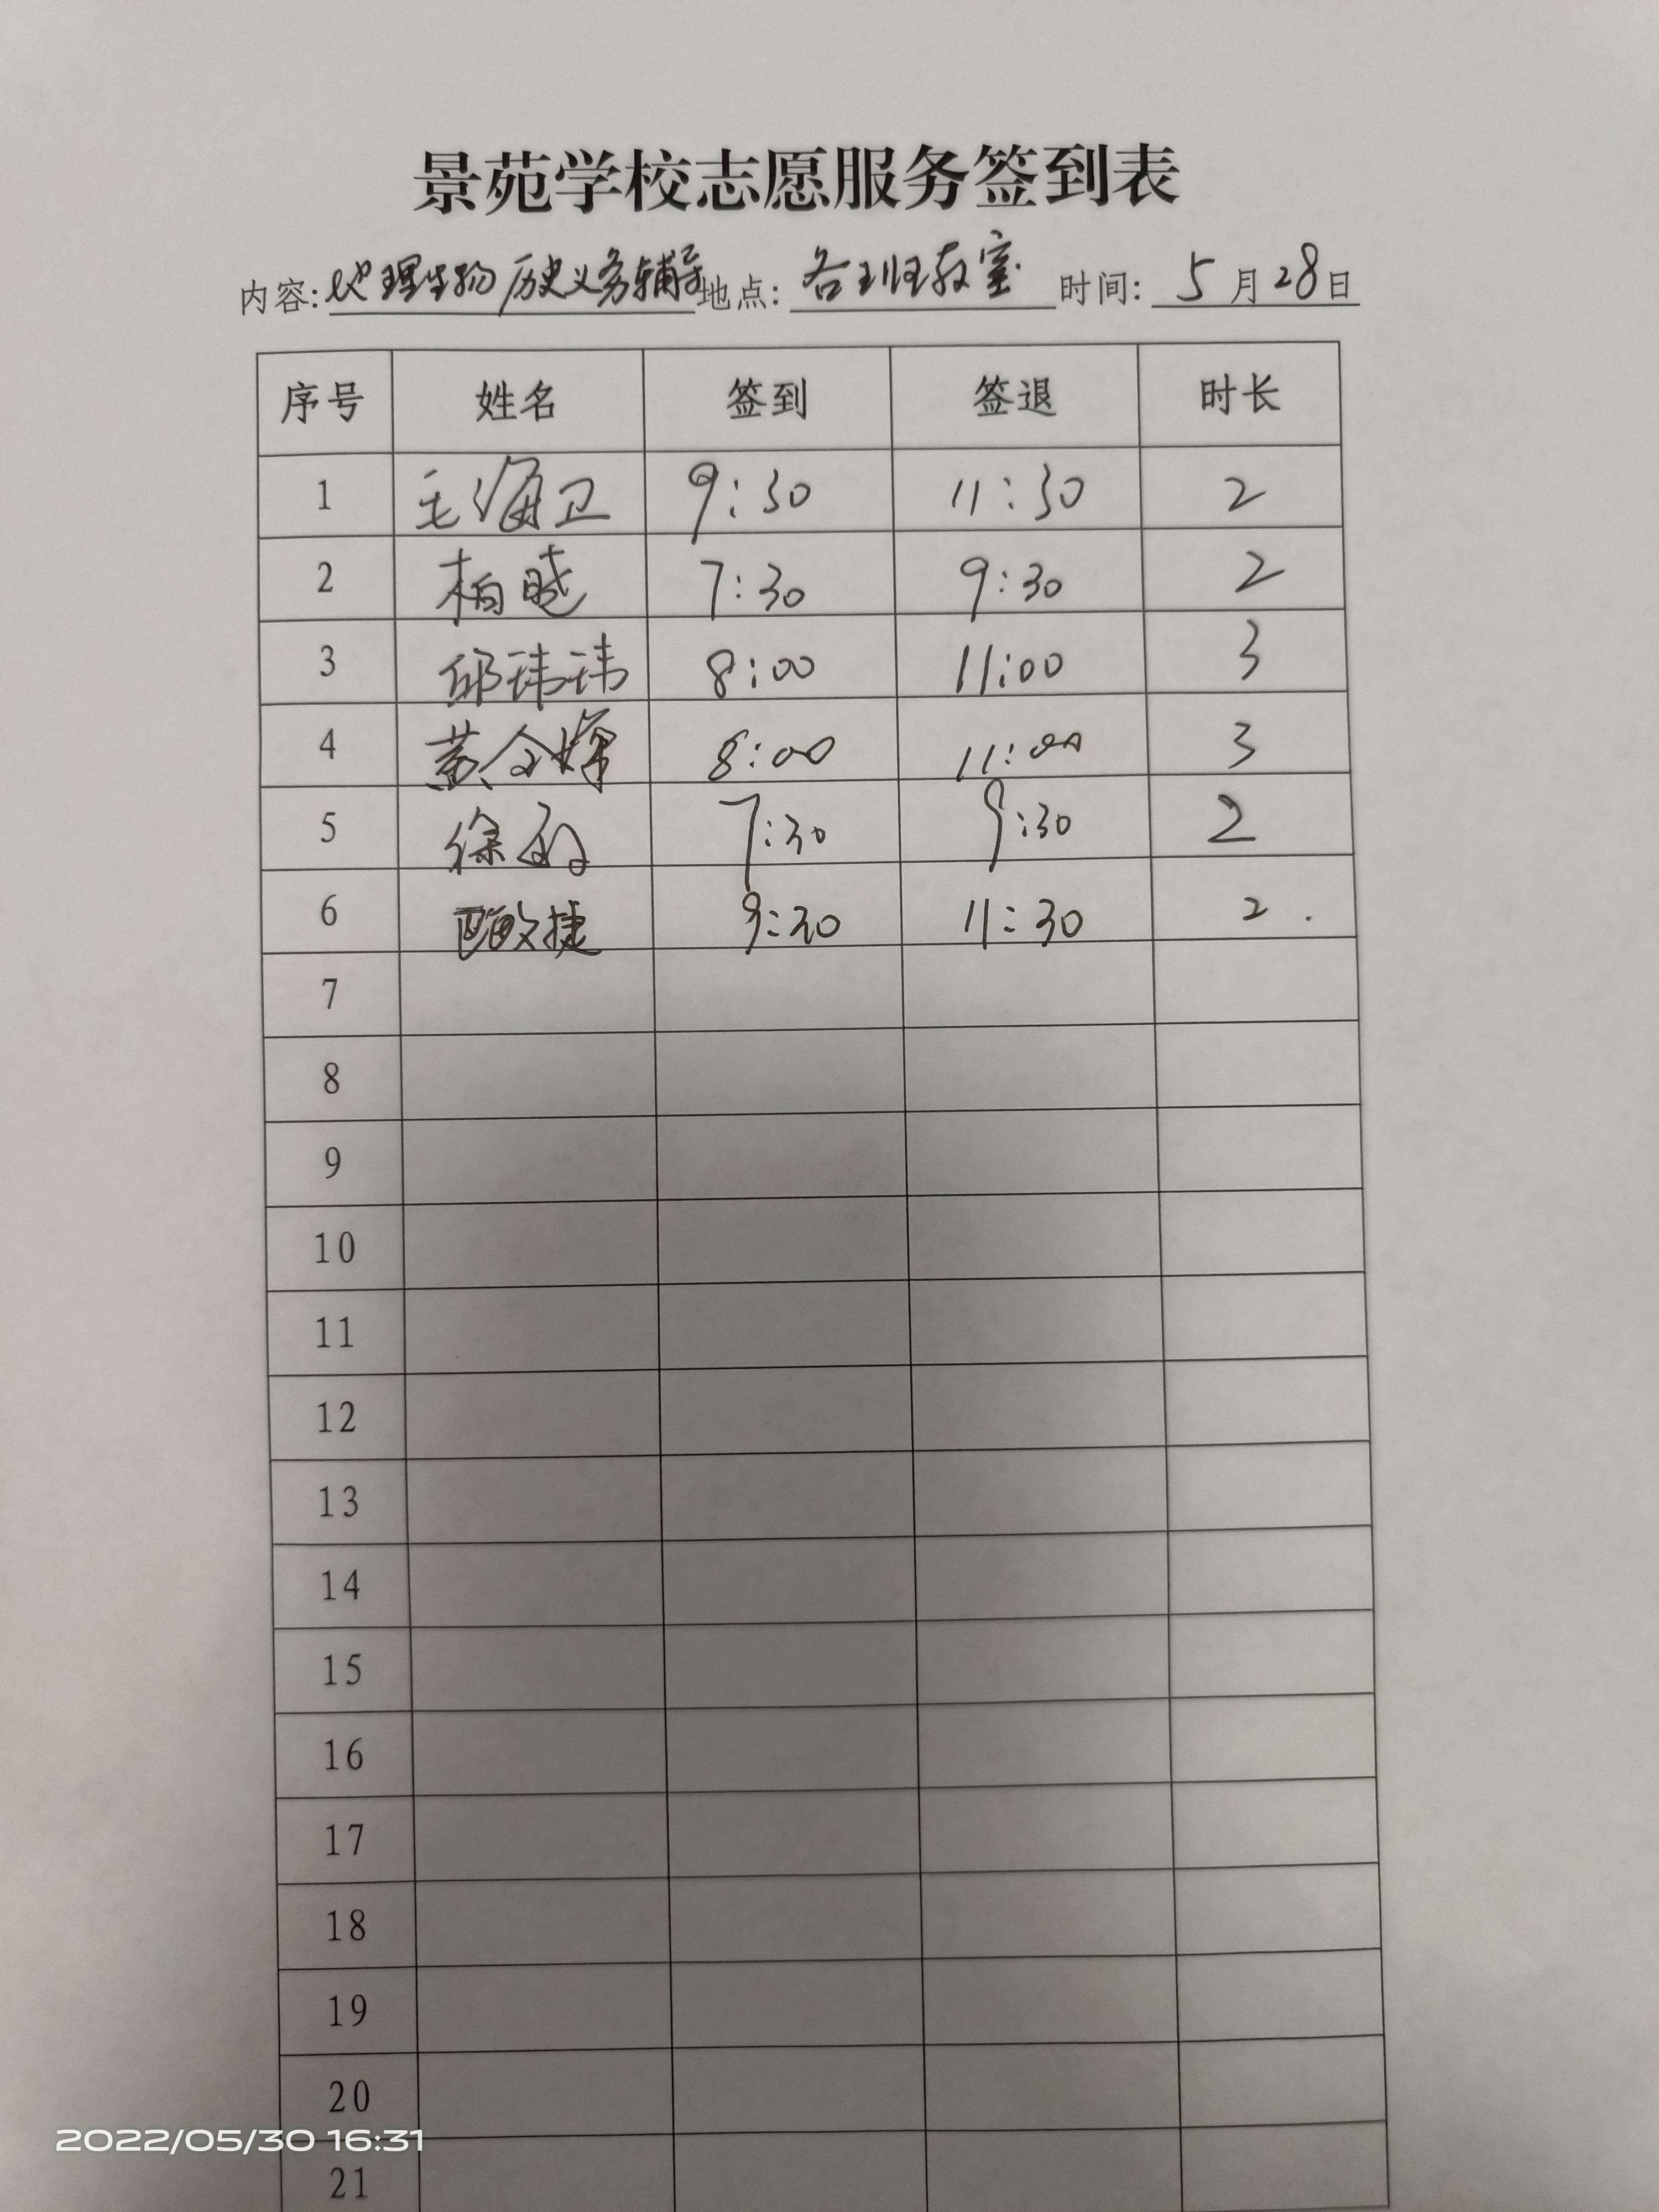 景苑学校志愿服务签到表
内容: 地理生物历史义务辅导 地点: 各班教室 时间: 5月28日
序号 姓名 签到 签退 时长
1 毛海卫 9:30 11:30 2
2 柏晓 7:30 9:30 2
3 邱玮玮 8:00 11:00 3
4 黄 8:00 11:00 3
5 徐 7:30 9:30 2
6 捷 9:30 11:30 2
7
8
9
10
11
12
13
14
15
16
17
18
19
20
2022/05/30 16:31
21